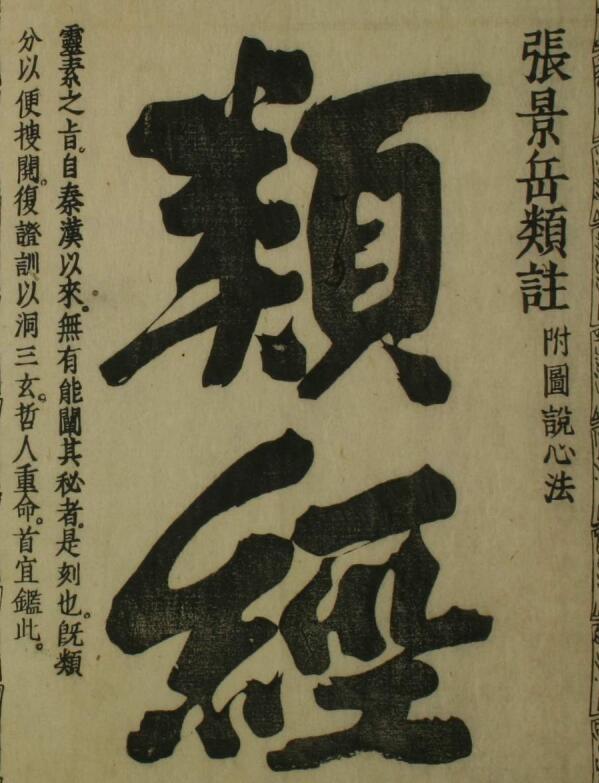 張景岳類註 附圖說心法
類經
靈素之旨。自秦漢以來。無有能闡其秘者。是刻也。旣類
分以便搜閱。復證訓以洞三玄。哲人重命。首宜鑑此。